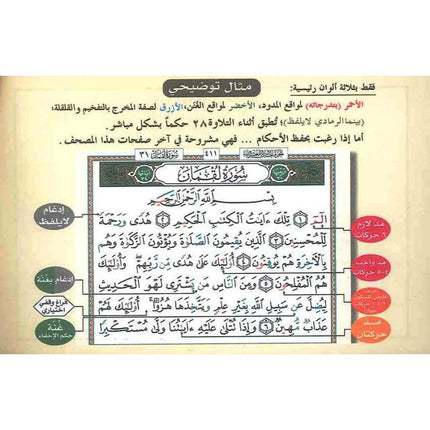 مثال توضيحي
فقط بثلاثة ألوان رئيسية:
الأحمر (بتدرجاته) لمواقع المدود، الأخضر لمواقع الغُنن، الأزرق لصفة المخرج بالتفخيم والقلقلة،
(بينما الرمادي لا يلفظ)؛ تُطبق أثناء التلاوة ٢٨ حكماً بشكل مباشر.
أما إذا رغبت بحفظ الأحكام ... فهي مشروحة في آخر صفحات هذا المصحف.
٤١١
سورة لقمان ٣١
سُورَةُ لُقْمَانَ
بِسْمِ اللَّهِ الرَّحْمَٰنِ الرَّحِيمِ
الٓمٓ ١ تِلْكَ ءَايَٰتُ الْكِتَٰبِ الْحَكِيمِ ٢ هُدًى وَرَحْمَةً
لِّلْمُحْسِنِينَ ٣ الَّذِينَ يُقِيمُونَ الصَّلَوٰةَ وَيُؤْتُونَ الزَّكَوٰةَ وَهُم
بِالْآخِرَةِ هُمْ يُوقِنُونَ ٤ أُوْلَٰٓئِكَ عَلَىٰ هُدًى مِّن رَّبِّهِمْ وَأُوْلَٰٓئِكَ
هُمُ الْمُفْلِحُونَ ٥ وَمِنَ النَّاسِ مَن يَشْتَرِى لَهْوَ الْحَدِيثِ
لِيُضِلَّ عَن سَبِيلِ اللَّهِ بِغَيْرِ عِلْمٍ وَيَتَّخِذَهَا هُزُوًا أُوْلَٰٓئِكَ لَهُمْ
عَذَابٌ مُّهِينٌ ٦ وَإِذَا تُتْلَىٰ عَلَيْهِ ءَايَٰتُنَا وَلَّىٰ مُسْتَكْبِرًا
مد لازم
٦ حركات
مد واجب
مد
حركتان
إدغام
لا يلفظ
إدغام بغنة
فراغ وقفي
اختياري
غُنة
حكم الإخفاء